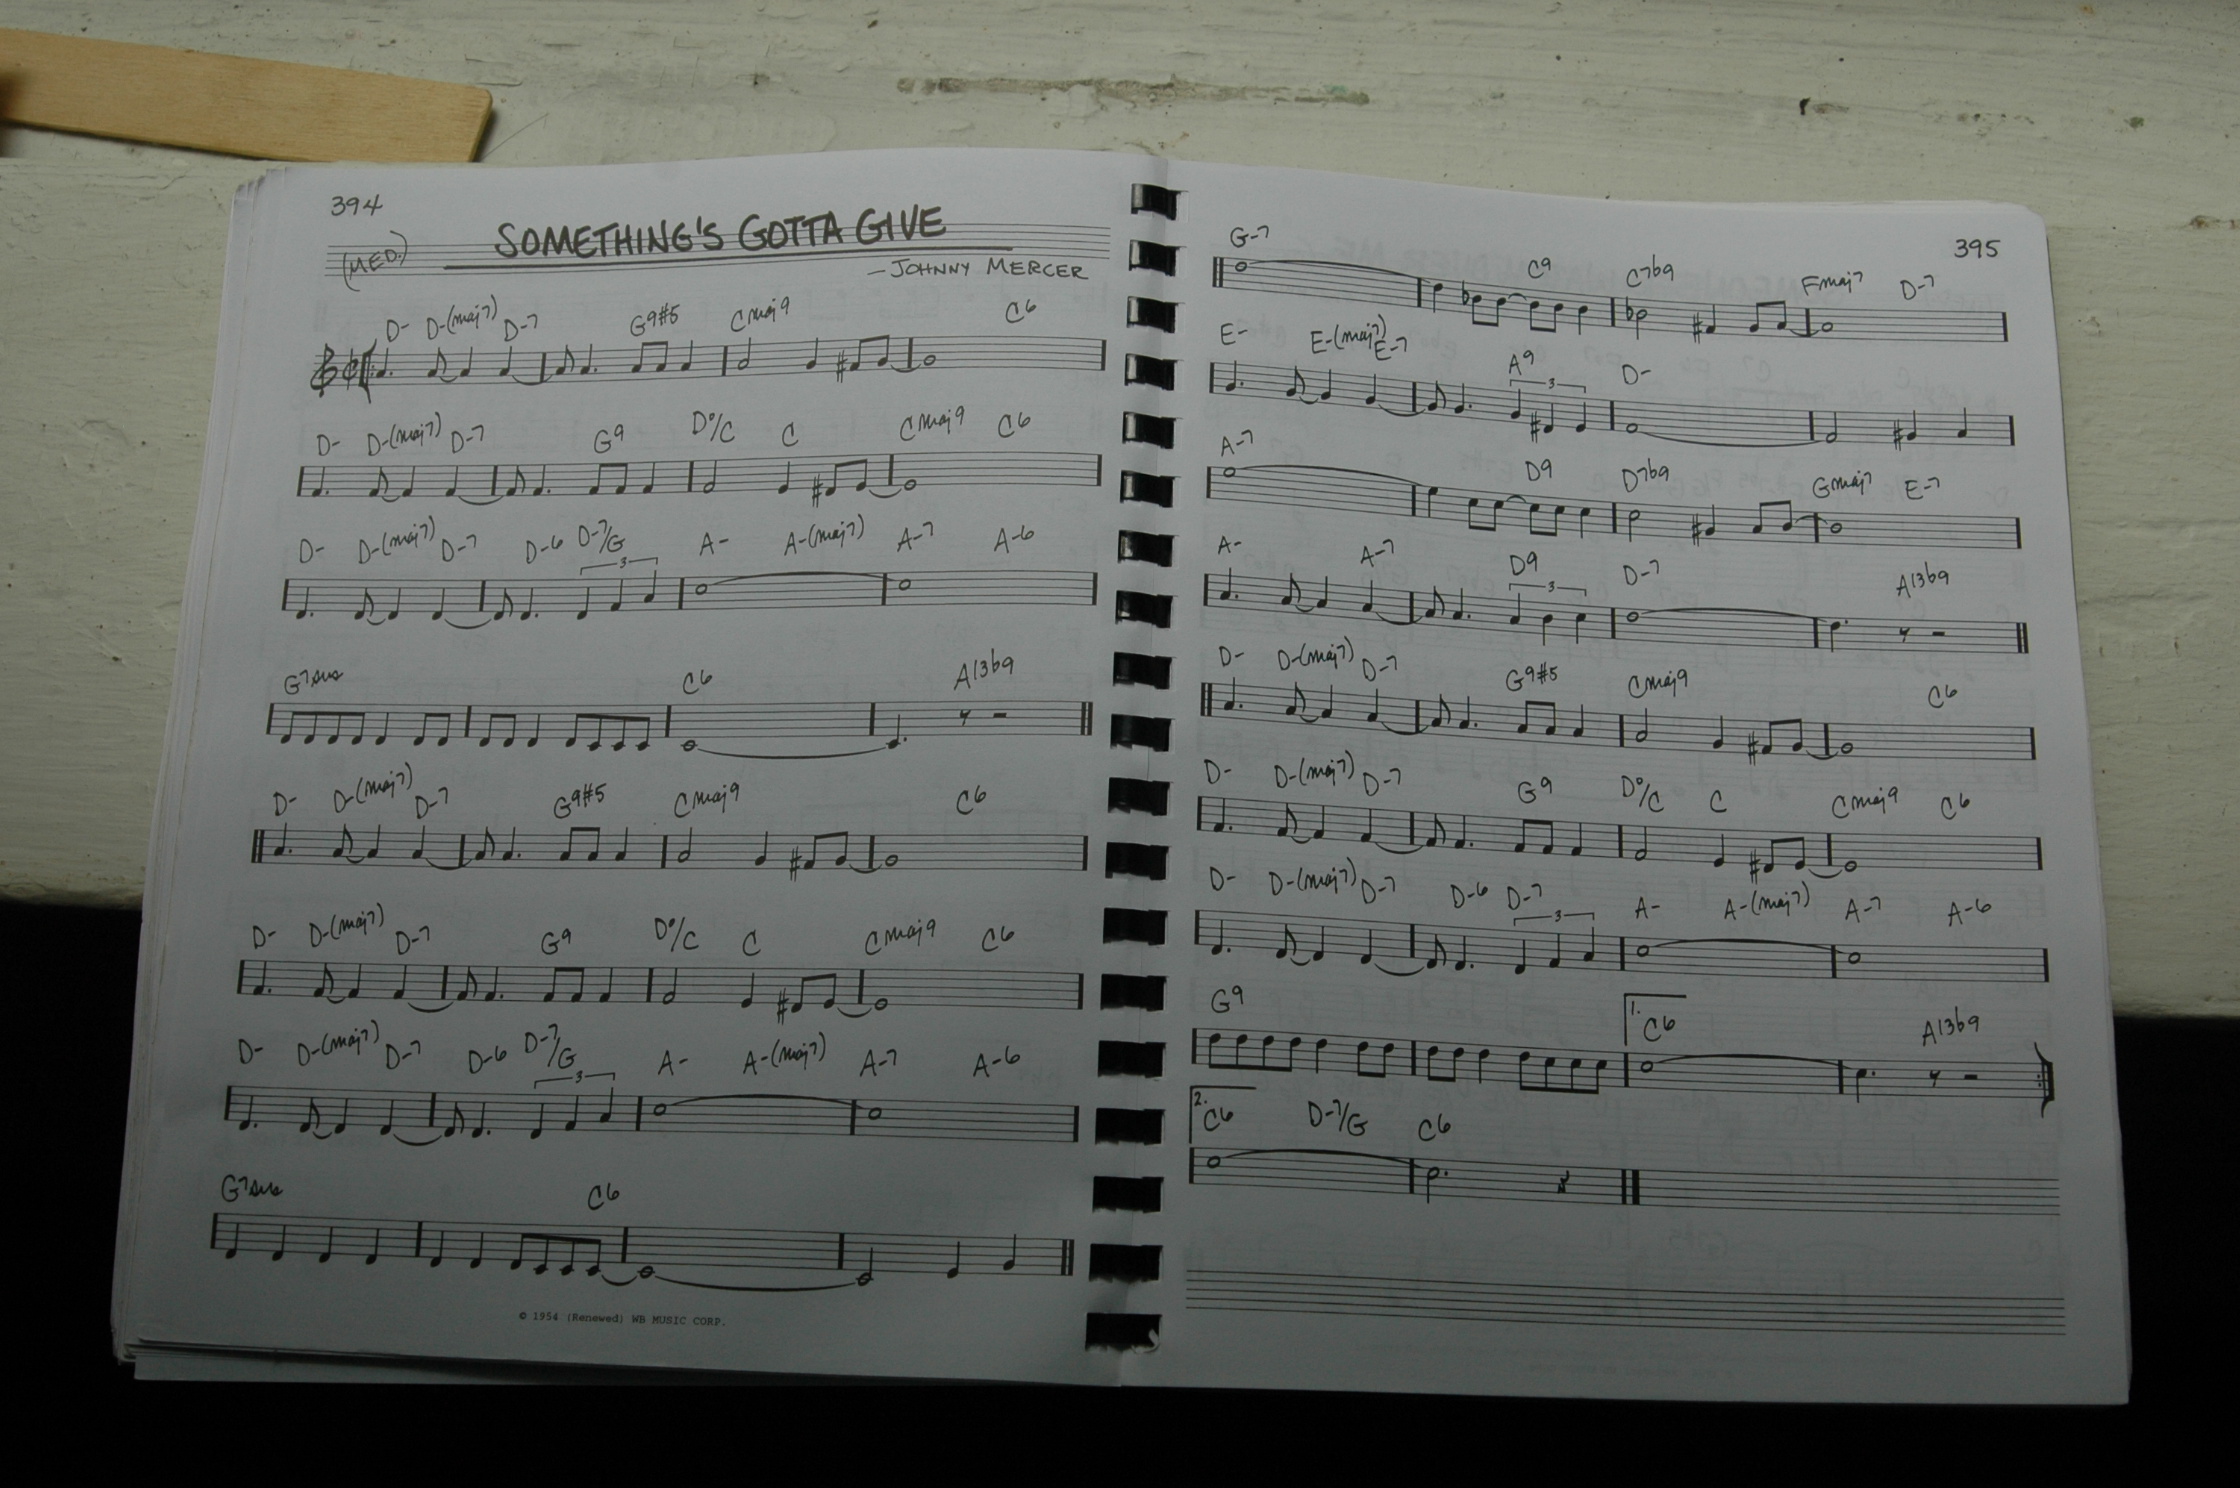 394
SOMETHING'S GOTTA GIVE
(MED.)
- JOHNNY MERCER
D- D-(maj7) D-7 G9#5 Cmaj9 C6
D- D-(maj7) D-7 G9 D°/C C Cmaj9 C6
D- D-(maj7) D-7 D-6 D-7/G A- A-(maj7) A-7 A-6
3
G7sus C6 A13b9
D- D-(maj7) D-7 G9#5 Cmaj9 C6
D- D-(maj7) D-7 G9 D°/C C Cmaj9 C6
D- D-(maj7) D-7 D-6 D-7/G A- A-(maj7) A-7 A-6
3
G7sus C6
© 1954 (Renewed) WB MUSIC CORP.
395
G-7 C9 C7b9 Fmaj7 D-7
E- E-(maj7) E-7 A9 D-
3
A-7 D9 D7b9 Gmaj7 E-7
A- A-7 D9 D-7 A13b9
3
D- D-(maj7) D-7 G9#5 Cmaj9 C6
D- D-(maj7) D-7 G9 D°/C C Cmaj9 C6
D- D-(maj7) D-7 D-6 D-7 A- A-(maj7) A-7 A-6
3
G9 1. C6 A13b9
2. C6 D-7/G C6